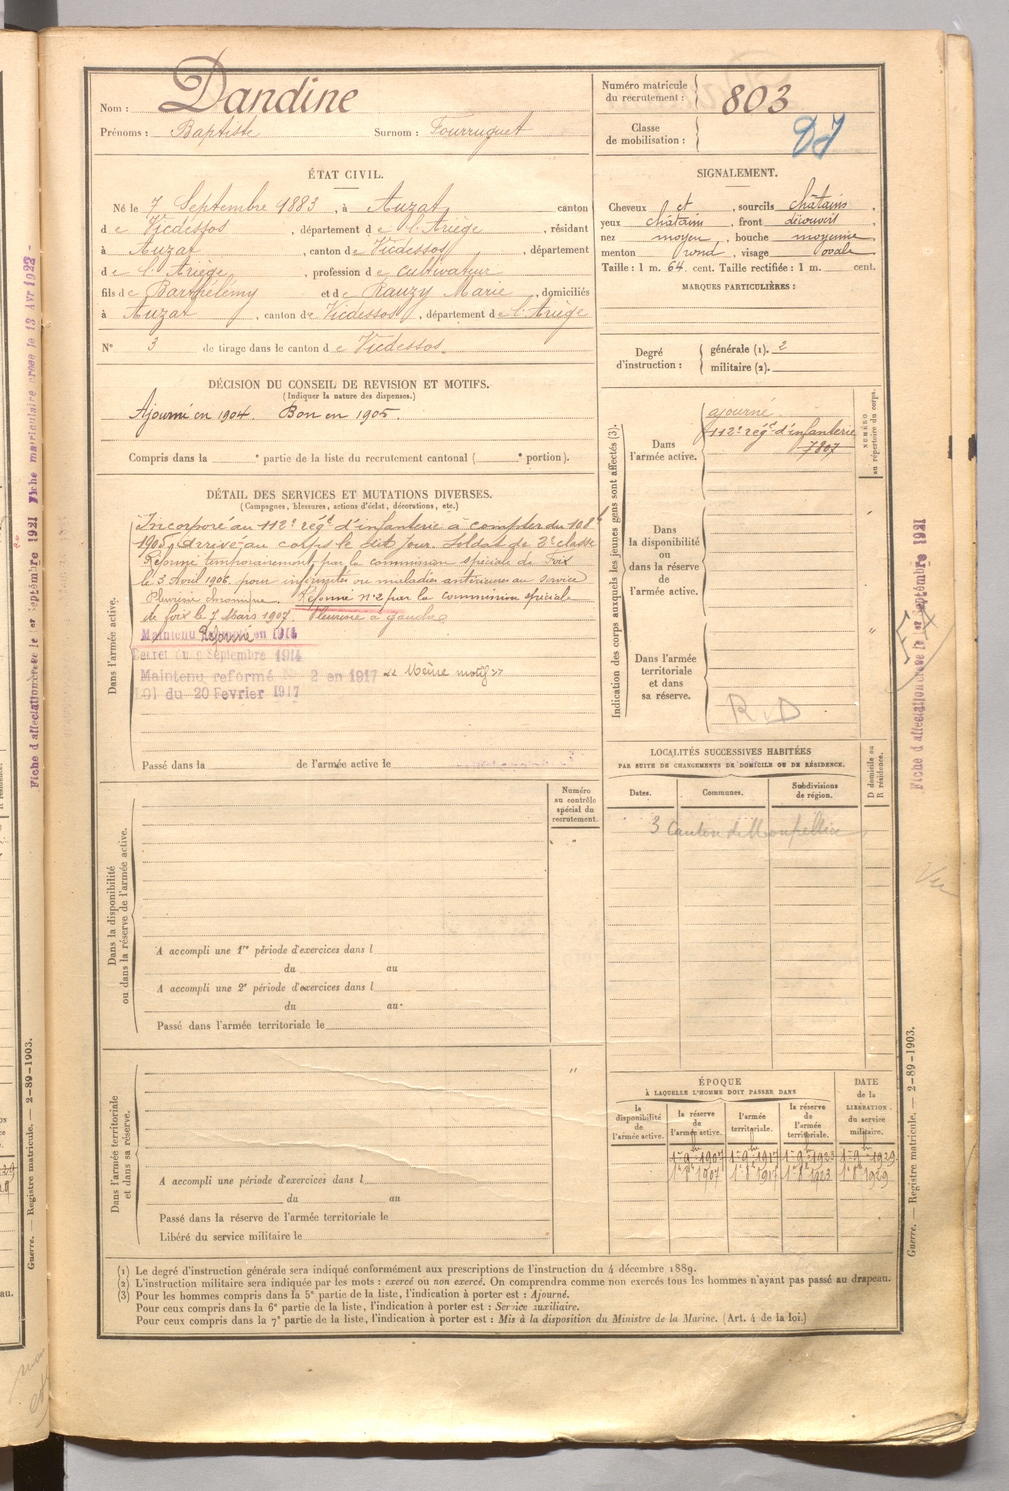 Nom : Dandine
Prénoms : Baptiste Surnom : Fourruguet
Numéro matricule du recrutement : 803
Classe de mobilisation :
ÉTAT CIVIL.
Né le 7 Septembre 1883, à Auzat, canton
de Vicdessos, département de l'Ariège, résidant
à Auzat, canton de Vicdessos, département
de l'Ariège, profession de cultivateur
fils de Barthélémy et de Rauzy Marie, domiciliés
à Auzat, canton de Vicdessos, département de l'Ariège
N° 3 de tirage dans le canton de Vicdessos.
SIGNALEMENT.
Cheveux et, sourcils châtains,
yeux châtain, front découvert,
nez moyen, bouche moyenne,
menton rond, visage ovale.
Taille : 1 m. 64 cent. Taille rectifiée : 1 m. cent.
MARQUES PARTICULIÈRES :
Degré d'instruction : générale (1). 2
militaire (2).
DÉCISION DU CONSEIL DE REVISION ET MOTIFS.
(Indiquer la nature des dispenses.)
Ajourné en 1904. Bon en 1905.
Compris dans la e partie de la liste du recrutement cantonal ( e portion).
DÉTAIL DES SERVICES ET MUTATIONS DIVERSES.
(Campagnes, blessures, actions d'éclat, décorations, etc.)
Dans l'armée active.
Incorporé au 112e régt d'infanterie à compter du
1905, arrivé au corps le dit jour. Soldat de 2e classe
Réformé temporairement par la commission spéciale de Foix
le 3 Avril 1906 pour infirmités ou maladies antérieures au service
Pleurésie chronique. Réformé n° 2 par la commission spéciale
de foix le 7 Mars 1907. Pleurésie à gauche
Maintenu Réformé en 1914
Décret du 9 Septembre 1914
Maintenu reformé N° 2 en 1917 « Même motif »
LOI du 20 Fevrier 1917
Passé dans la de l'armée active le
Indication des corps auxquels les jeunes gens sont affectés (3).
Dans l'armée active.
ajourné.
112e régt d'infanterie
7807
NUMÉRO au répertoire du corps.
Dans la disponibilité ou dans la réserve de l'armée active.
Dans l'armée territoriale et dans sa réserve.
R.D
LOCALITÉS SUCCESSIVES HABITÉES
PAR SUITE DE CHANGEMENTS DE DOMICILE OU DE RÉSIDENCE.
Dates. Communes. Subdivisions de région. D domicile ou R résidence.
3 Canton de Montpellier
Numéro au contrôle spécial du recrutement.
Dans la disponibilité ou dans la réserve de l'armée active.
A accompli une 1re période d'exercices dans l
du au
A accompli une 2e période d'exercices dans l
du au
Passé dans l'armée territoriale le
Dans l'armée territoriale et dans sa réserve.
A accompli une période d'exercices dans l
du au
Passé dans la réserve de l'armée territoriale le
Libéré du service militaire le
ÉPOQUE
À LAQUELLE L'HOMME DOIT PASSER DANS
la disponibilité de l'armée active. la réserve de l'armée active. l'armée territoriale. la réserve de l'armée territoriale. DATE de la LIBÉRATION du service militaire.
1907 1917 1923 1929
1907 1917 1923 1929
(1) Le degré d'instruction générale sera indiqué conformément aux prescriptions de l'instruction du 4 décembre 1889.
(2) L'instruction militaire sera indiquée par les mots : exercé ou non exercé. On comprendra comme non exercés tous les hommes n'ayant pas passé au drapeau.
(3) Pour les hommes compris dans la 5e partie de la liste, l'indication à porter est : Ajourné.
Pour ceux compris dans la 6e partie de la liste, l'indication à porter est : Service auxiliaire.
Pour ceux compris dans la 7e partie de la liste, l'indication à porter est : Mis à la disposition du Ministre de la Marine. (Art. 4 de la loi.)
Guerre. — Registre matricule. — 2-89-1903.
Fiche d'affectation créée le 1er Septembre 1921
Fiche d'affectation créée le 1er Septembre 1921 Fiche matriculaire créée le 13 Avr 1922
Guerre. — Registre matricule. — 2-89-1903.